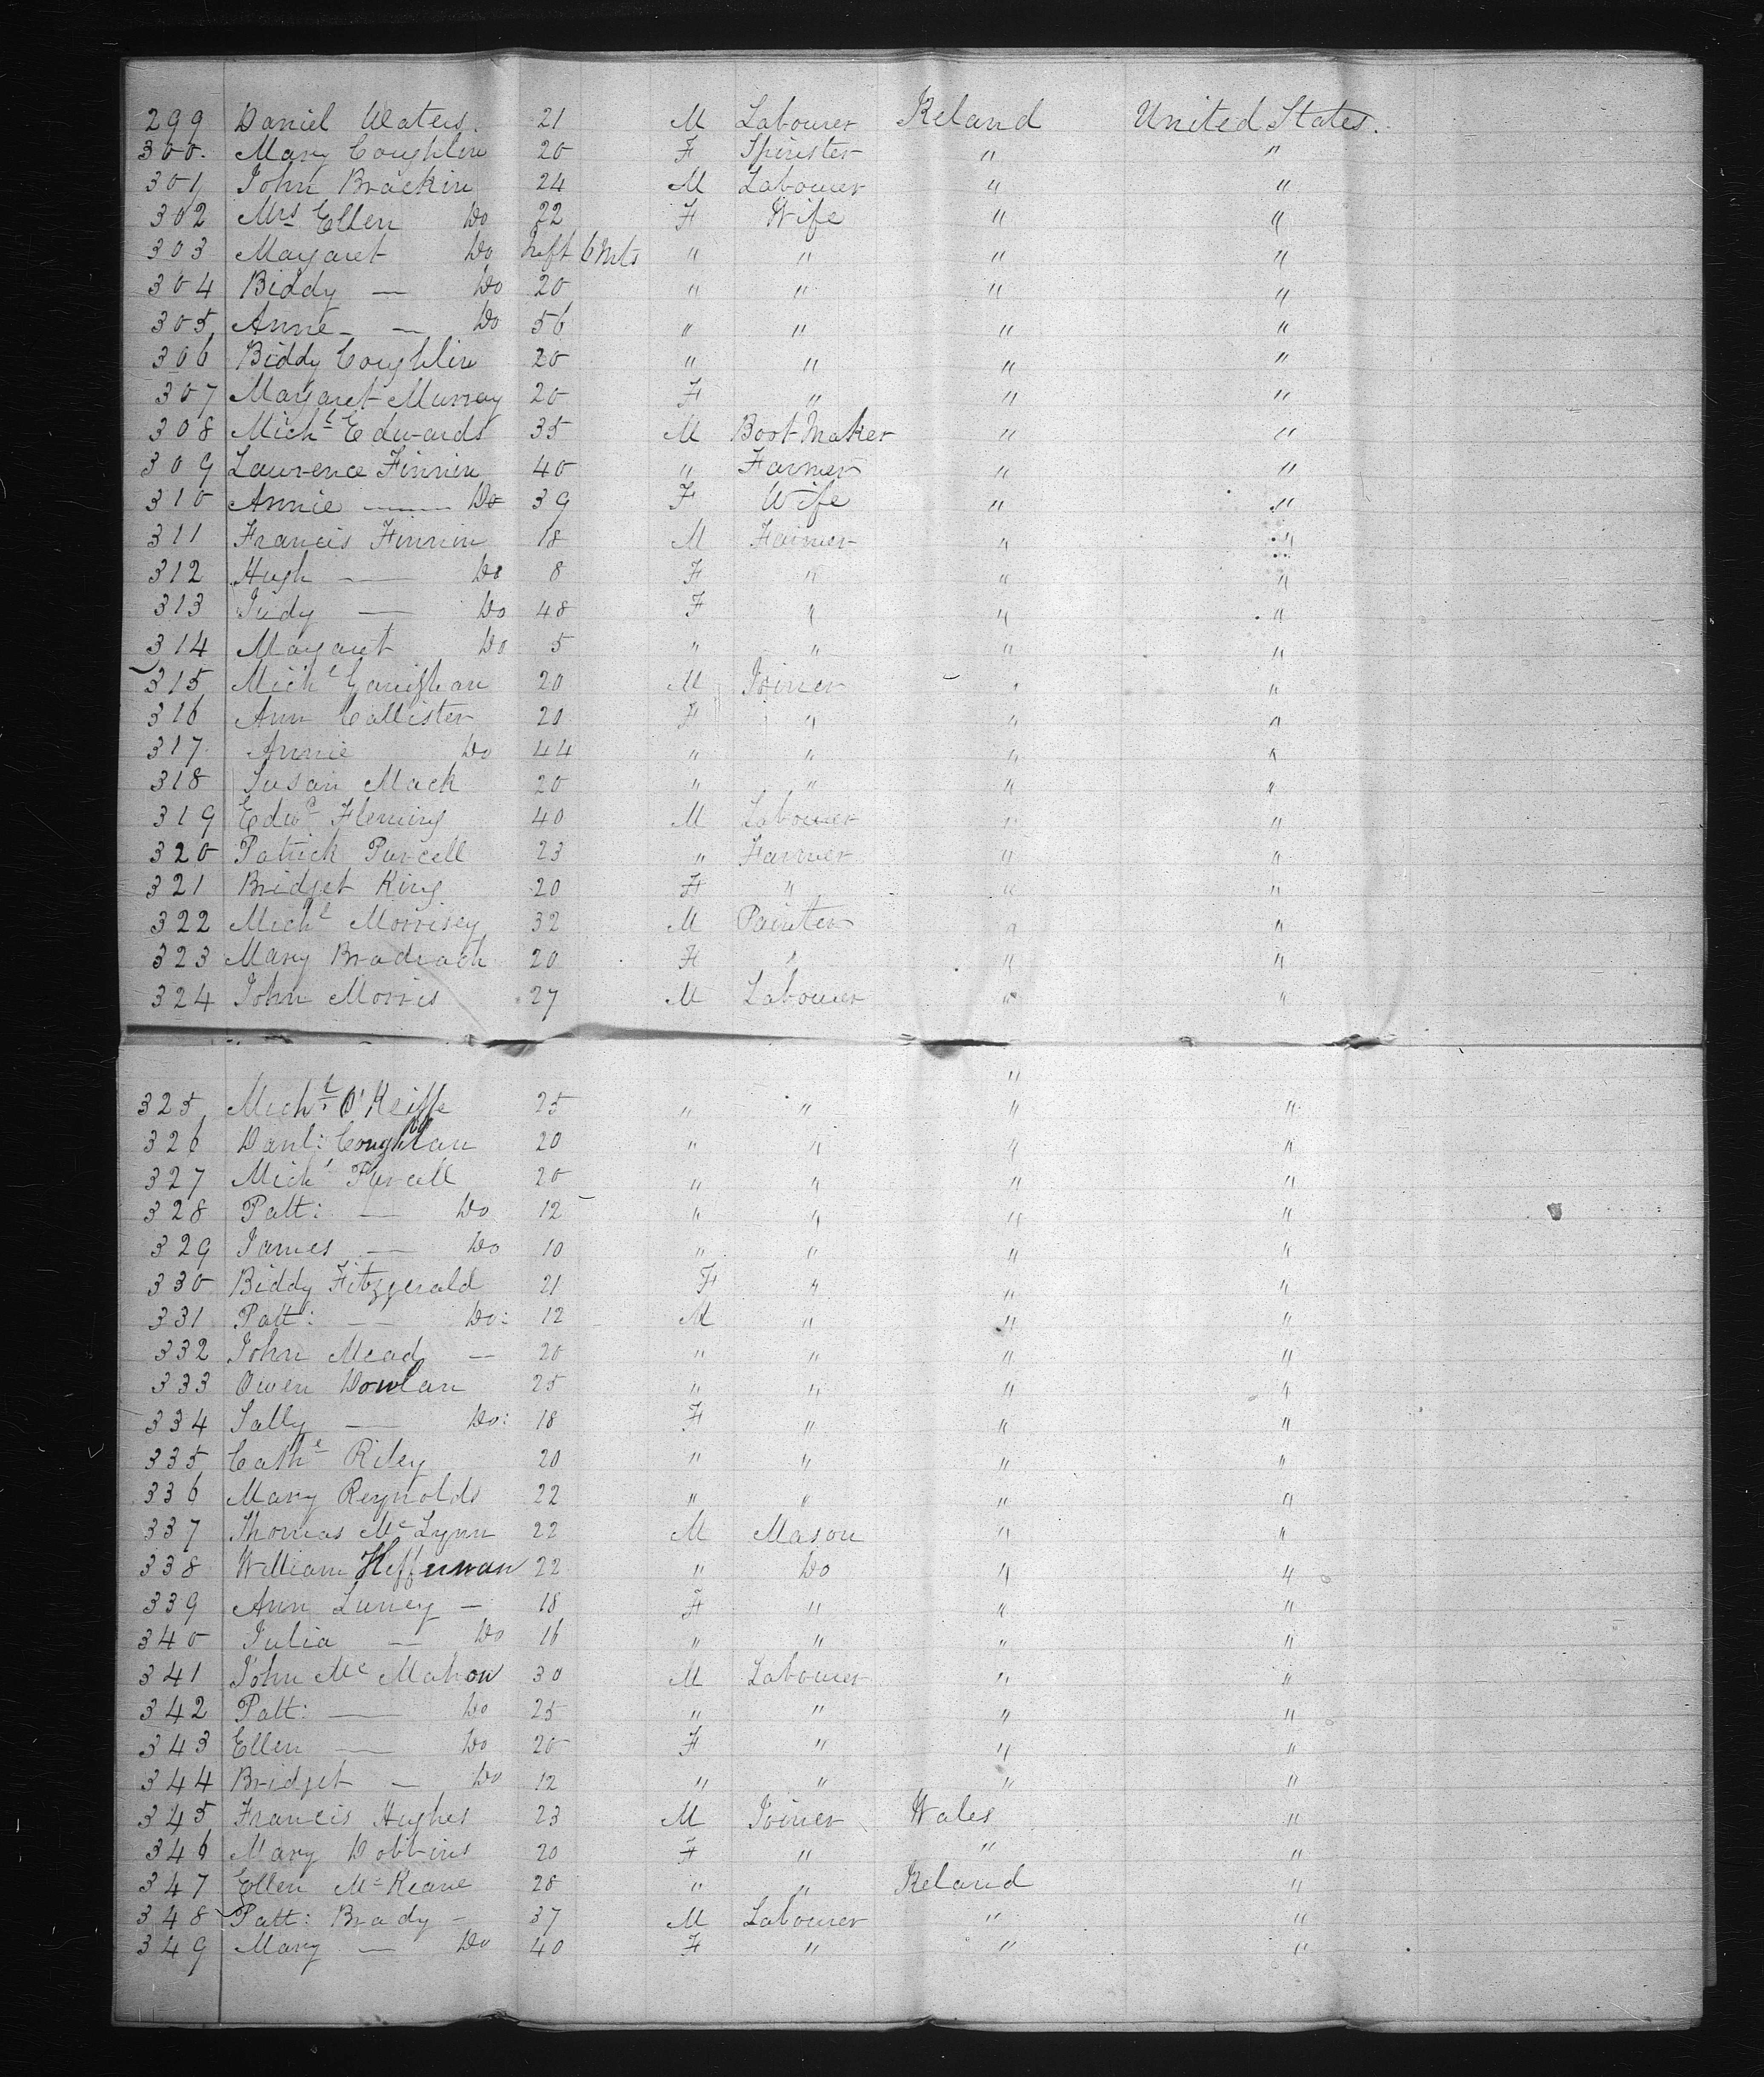 299 Daniel Waters. 21 M Labourer Ireland United States.
300. Mary Coughlin 20 F Spinster " "
301 John Brackin 24 M Labourer " "
302 Mrs Ellen Do 22 F Wife " "
303 Margaret Do Inft 6 Mts " " " "
304 Biddy — Do 20 " " " "
305 Anne — Do 56 " " " "
306 Biddy Coughlin 20 " " " "
307 Margaret Murray 20 F " " "
308 Michl Edwards 35 M Boot Maker " "
309 Laurence Finnin 40 " Farmer " "
310 Annie — Do 39 F Wife " "
311 Francis Finnin 18 M Farmer " "
312 Hugh — Do 8 F " " "
313 Judy — Do 48 F " " "
314 Margaret Do 5 " " " "
315 Michl 20 M Joiner " "
316 Ann Callister 20 F " " "
317 Annie Do 44 " " " "
318 Susan Mack 20 " " " "
319 Edwd Fleming 40 M Labourer " "
320 Patrick Purcell 23 " Farmer " "
321 Bridget King 20 F " " "
322 Michl Morrisey 32 M Painter " "
323 Mary 20 F " " "
324 John Morris 27 M Labourer " "
"
325 Michl O'Keiffe 25 " " " "
326 Danl: Coughlan 20 " " " "
327 Michl Purcell 20 " " " "
328 Patt: — Do 12 " " " "
329 James — Do 10 " " " "
330 Biddy Fitzgerald 21 F " " "
331 Patt: — Do: 12 M " " "
332 John Mead — 20 " " " "
333 Owen Dowlan 25 " " " "
334 Sally — Do: 18 F " " "
335 Cathe Riley 20 " " " "
336 Mary Reynolds 22 " " " "
337 Thomas Mc Lynn 22 M Mason " "
338 William Heffernan 22 " Do " "
339 Ann Luney — 18 F " " "
340 Julia — Do 16 " " " "
341 John Mc Mahon 30 M Labourer " "
342 Patt: — Do 25 " " " "
343 Ellen — Do 20 F " " "
344 Bridget — Do 12 " " " "
345 Francis Hughes 23 M Joiner Wales "
346 Mary Dobbins 20 F " " "
347 Ellen Mc Keane 28 " " Ireland "
348 Patt: Brady — 37 M Labourer " "
349 Mary — Do 40 F " " "